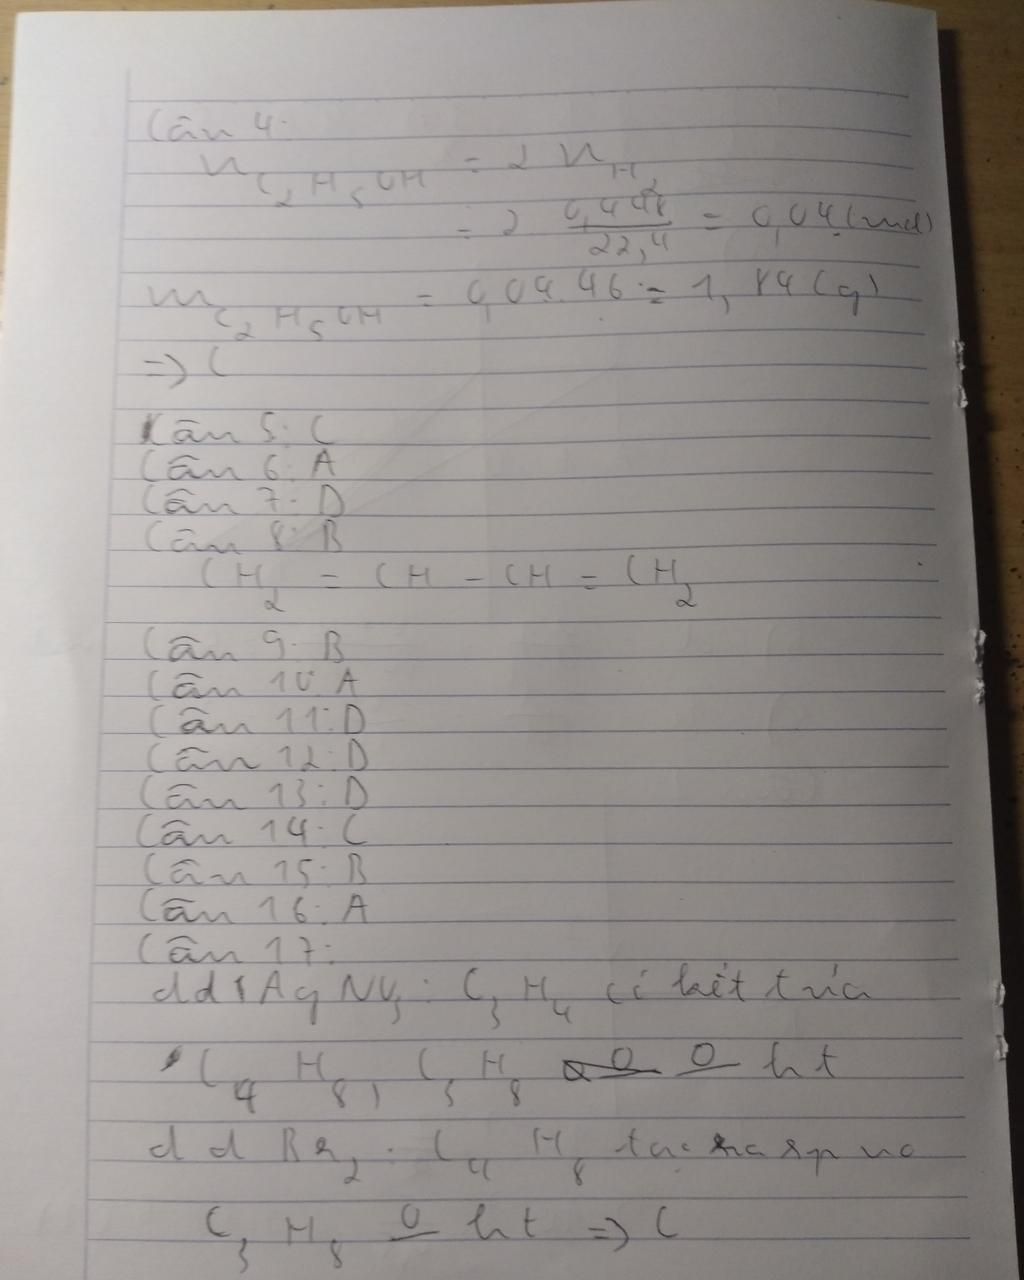 Câu 4:
n C₂H₅OH = 2 n H₂
= 2 0,448/22,4 = 0,04 (mol)
m C₂H₅OH = 0,04.46 = 1,84 (g)
=> C
Câu 5: C
Câu 6: A
Câu 7: D
Câu 8: B
CH₂ = CH - CH = CH₂
Câu 9: B
Câu 10: A
Câu 11: D
Câu 12: D
Câu 13: D
Câu 14: C
Câu 15: B
Câu 16: A
Câu 17:
dd AgNO₃: C₃H₄ có kết tủa
C₄H₈, C₃H₈ 0 ht
dd Br₂: C₄H₈ tạo ra sp no
C₃H₈ 0 ht => C